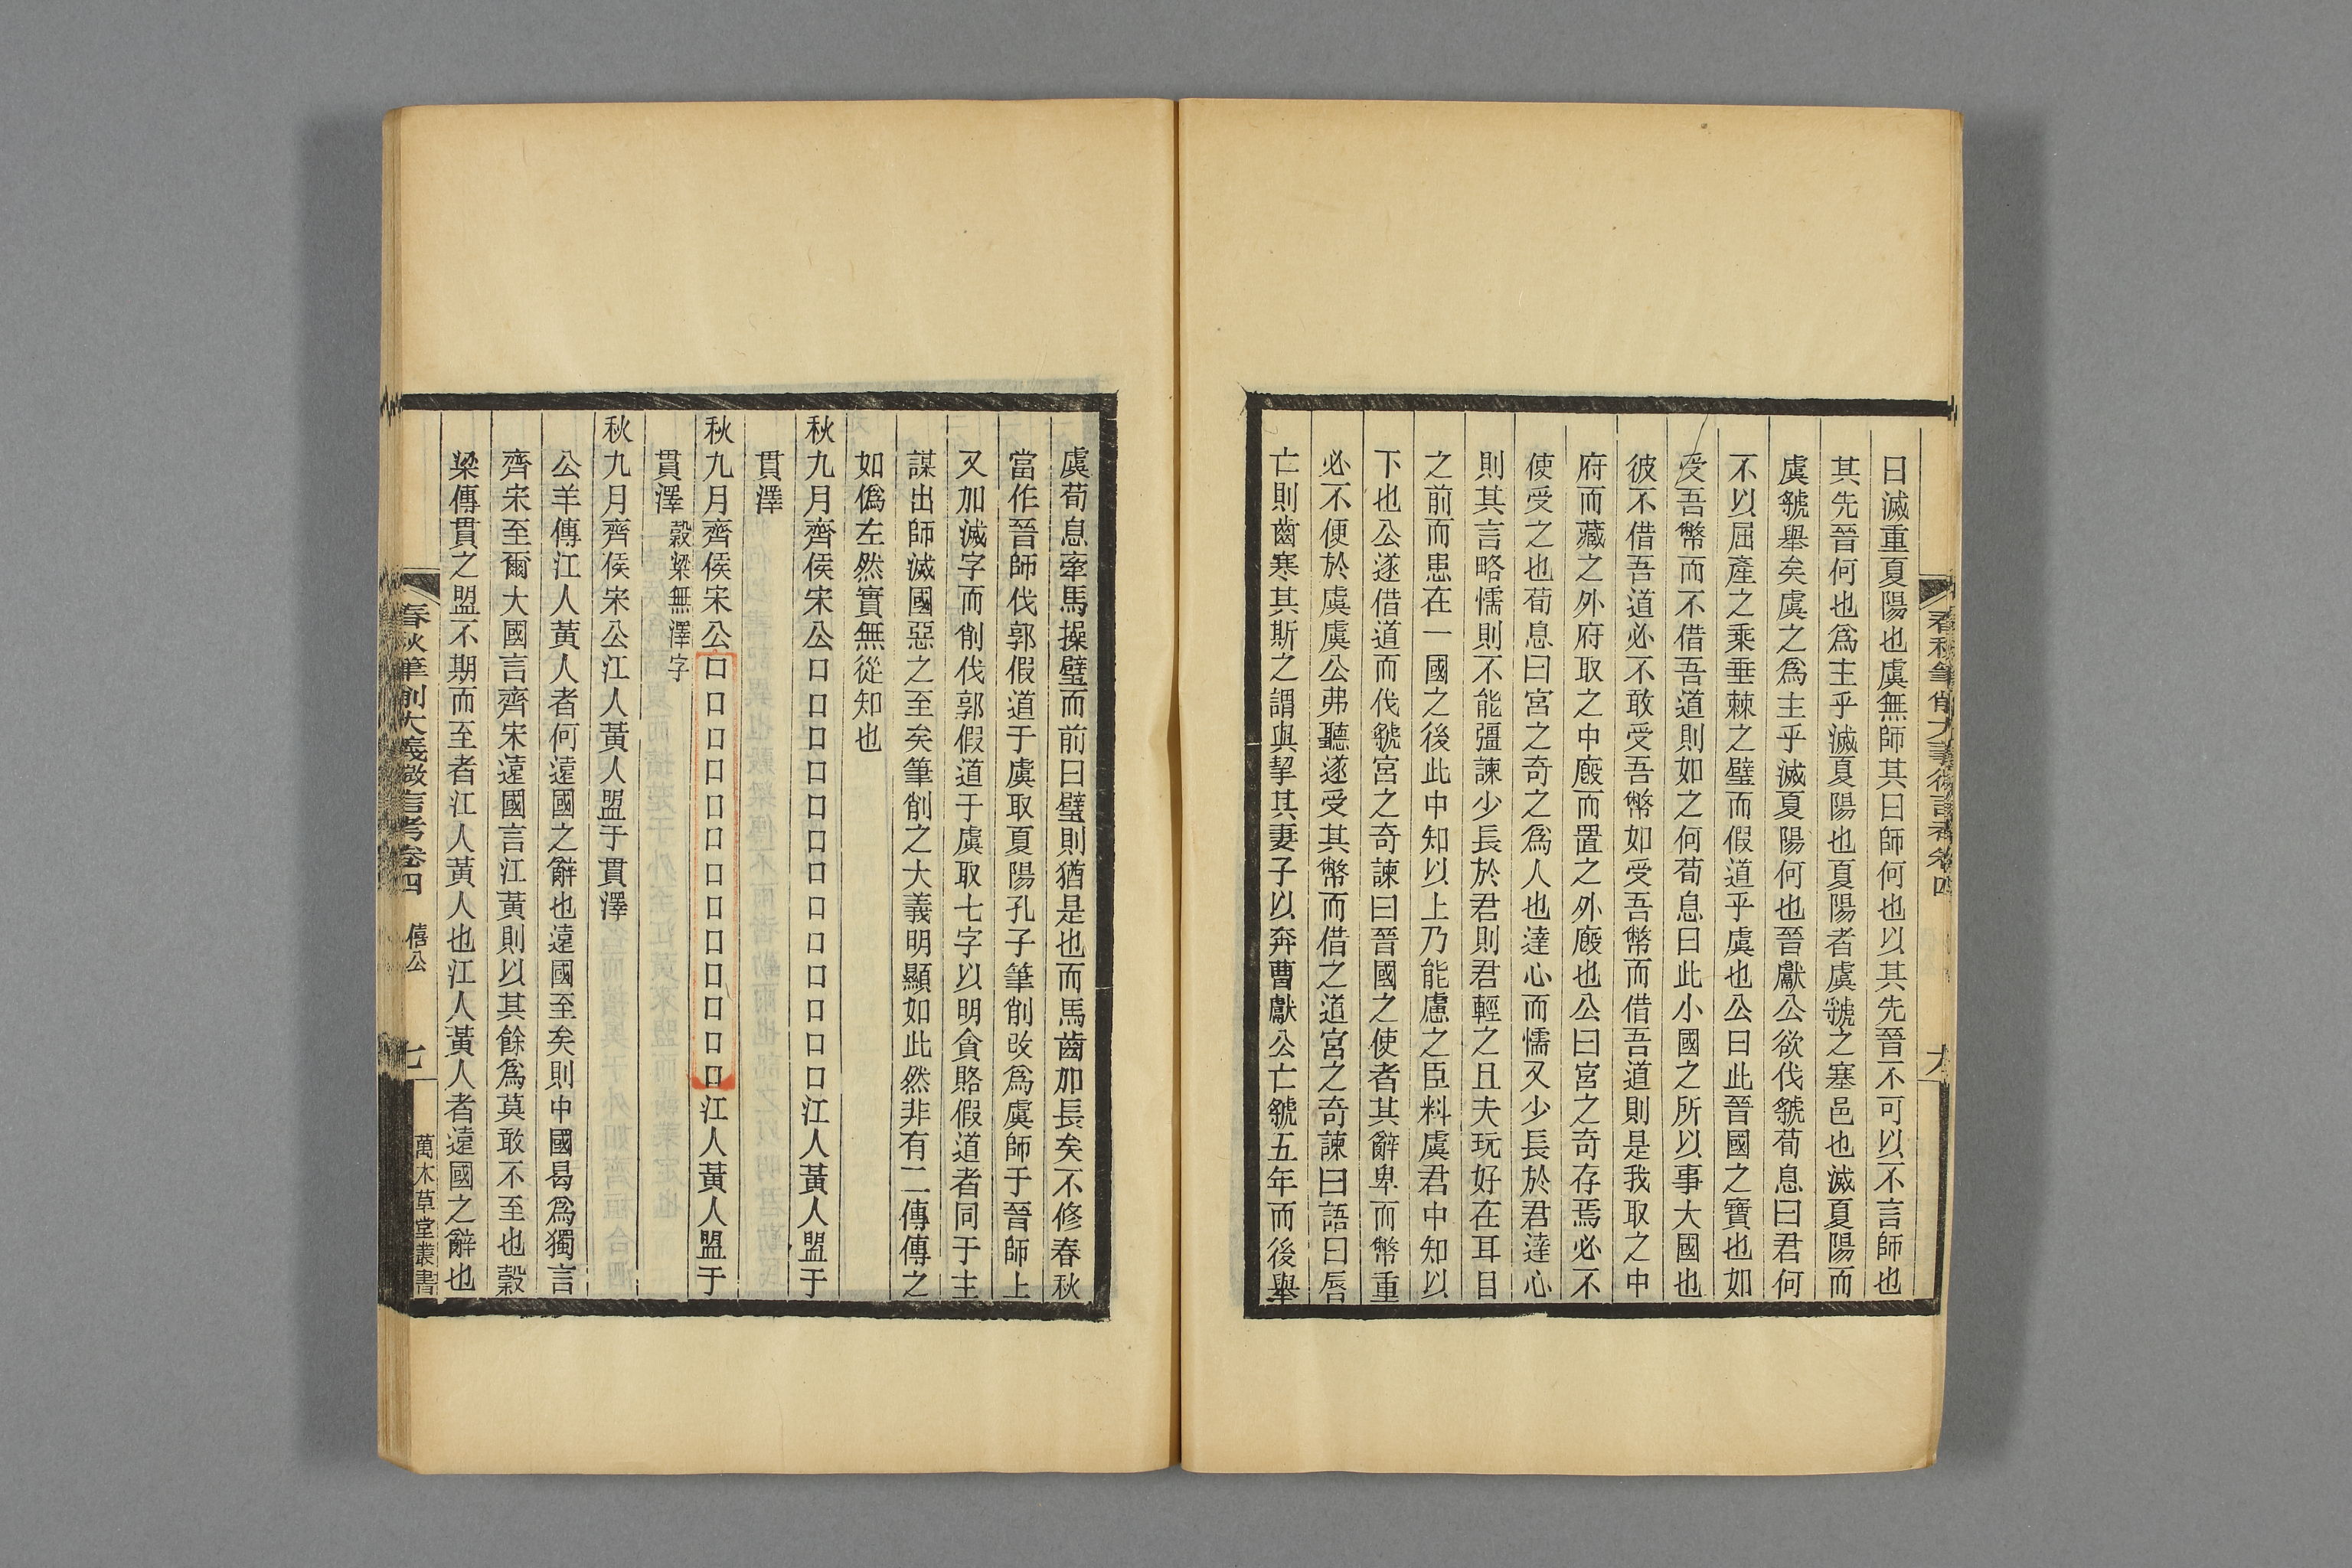 曰滅重夏陽也虞無師其曰師何也以其先晉不可以不言師也
其先晉何也爲主乎滅夏陽也夏陽者虞虢之塞邑也滅夏陽而
虞虢舉矣虞之爲主乎滅夏陽何也晉獻公欲伐虢荀息曰君何
不以屈產之乘垂棘之璧而假道乎虞也公曰此晉國之寶也如
受吾幣而不借吾道則如之何荀息曰此小國之所以事大國也
彼不借吾道必不敢受吾幣如受吾幣而借吾道則是我取之中
府而藏之外府取之中廄而置之外廄也公曰宮之奇存焉必不
使受之也荀息曰宮之奇之爲人也達心而懦又少長於君達心
則其言略懦則不能彊諫少長於君則君輕之且夫玩好在耳目
之前而患在一國之後此中知以上乃能慮之臣料虞君中知以
下也公遂借道而伐虢宮之奇諫曰晉國之使者其辭卑而幣重
必不便於虞虞公弗聽遂受其幣而借之道宮之奇諫曰語曰唇
亡則齒寒其斯之謂與挈其妻子以奔曹獻公亡虢五年而後舉
春秋筆削大義微言考卷四
虞荀息牽馬操璧而前曰璧則猶是也而馬齒加長矣不修春秋
當作晉師伐郭假道于虞取夏陽孔子筆削改爲虞師于晉師上
又加滅字而削伐郭假道于虞取七字以明貪賂假道者同于主
謀出師滅國惡之至矣筆削之大義明顯如此然非有二傳傳之
如僞左然實無從知也
秋九月齊侯宋公口口口口口口口口口口口口口江人黃人盟于
貫澤
秋九月齊侯宋公口口口口口口口口口口口口口江人黃人盟于
貫澤 穀梁無澤字
秋九月齊侯宋公江人黃人盟于貫澤
公羊傳江人黃人者何遠國之辭也遠國至矣則中國曷爲獨言
齊宋至爾大國言齊宋遠國言江黃則以其餘爲莫敢不至也穀
梁傳貫之盟不期而至者江人黃人也江人黃人者遠國之辭也
春秋筆削大義微言考卷四 僖公 七 萬木草堂叢書